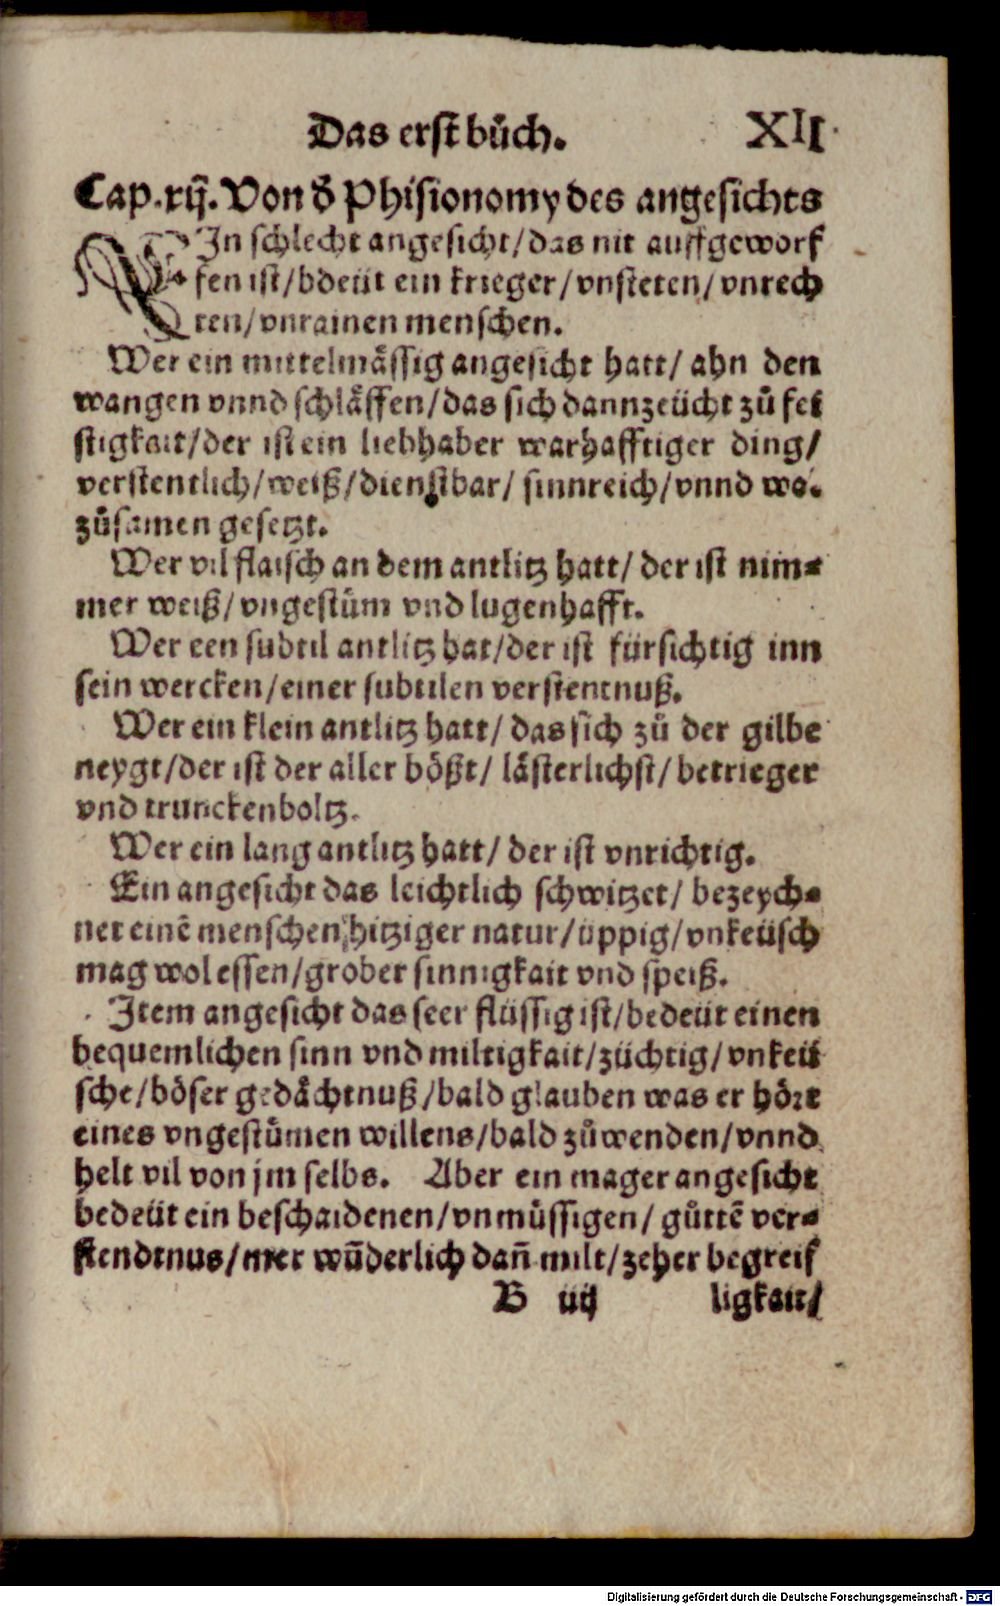 Das erst bůch. XII
Cap.xij. Von d̃ Phisionomy des angesichts
EJn schlecht angesicht/das nit auffgeworf
fen ist/bdeüt ein krieger/vnsteten/vnrech
ten/vnrainen menschen.
Wer ein mittelmässig angesicht hatt/ ahn den
wangen vnnd schläffen/das sich dannzeücht zů fei
stigkait/der ist ein liebhaber warhafftiger ding/
verstentlich/weiß/dienstbar/ sinnreich/vnnd wol
zůsamen gesetzt.
Wer vil flaisch an dem antlitz hatt/ der ist nim⸗
mer weiß/vngestům vnd lugenhafft.
Wer een subtil antlitz hat/der ist fürsichtig inn
sein wercken/einer subtilen verstentnuß.
Wer ein klein antlitz hatt/ das sich zů der gilbe
neygt/der ist der aller bößt/ lästerlichst/betrieger
vnd trunckenboltz.
Wer ein lang antlitz hatt/ der ist vnrichtig.
Ein angesicht das leichtlich schwitzet/ bezeych⸗
net einē menschen hitziger natur/üppig/vnkeüsch
mag wol essen/grober sinnigkait vnd speiß.
Jtem angesicht das seer flüssig ist/bedeüt einen
bequemlichen sinn vnd miltigkait/züchtig/vnkeü
sche/böser gedächtnuß/bald glauben was er hört
eines vngestümen willens/bald zůwenden/vnnd
helt vil von jm selbs. Aber ein mager angesicht
bedeüt ein beschaidenen/vnmůssigen/ gůttē ver⸗
stendtnus/mer wūderlich dañ milt/zeher begreif
B iiij ligkait/
Digitalisierung gefördert durch die Deutsche Forschungsgemeinschaft - DFG